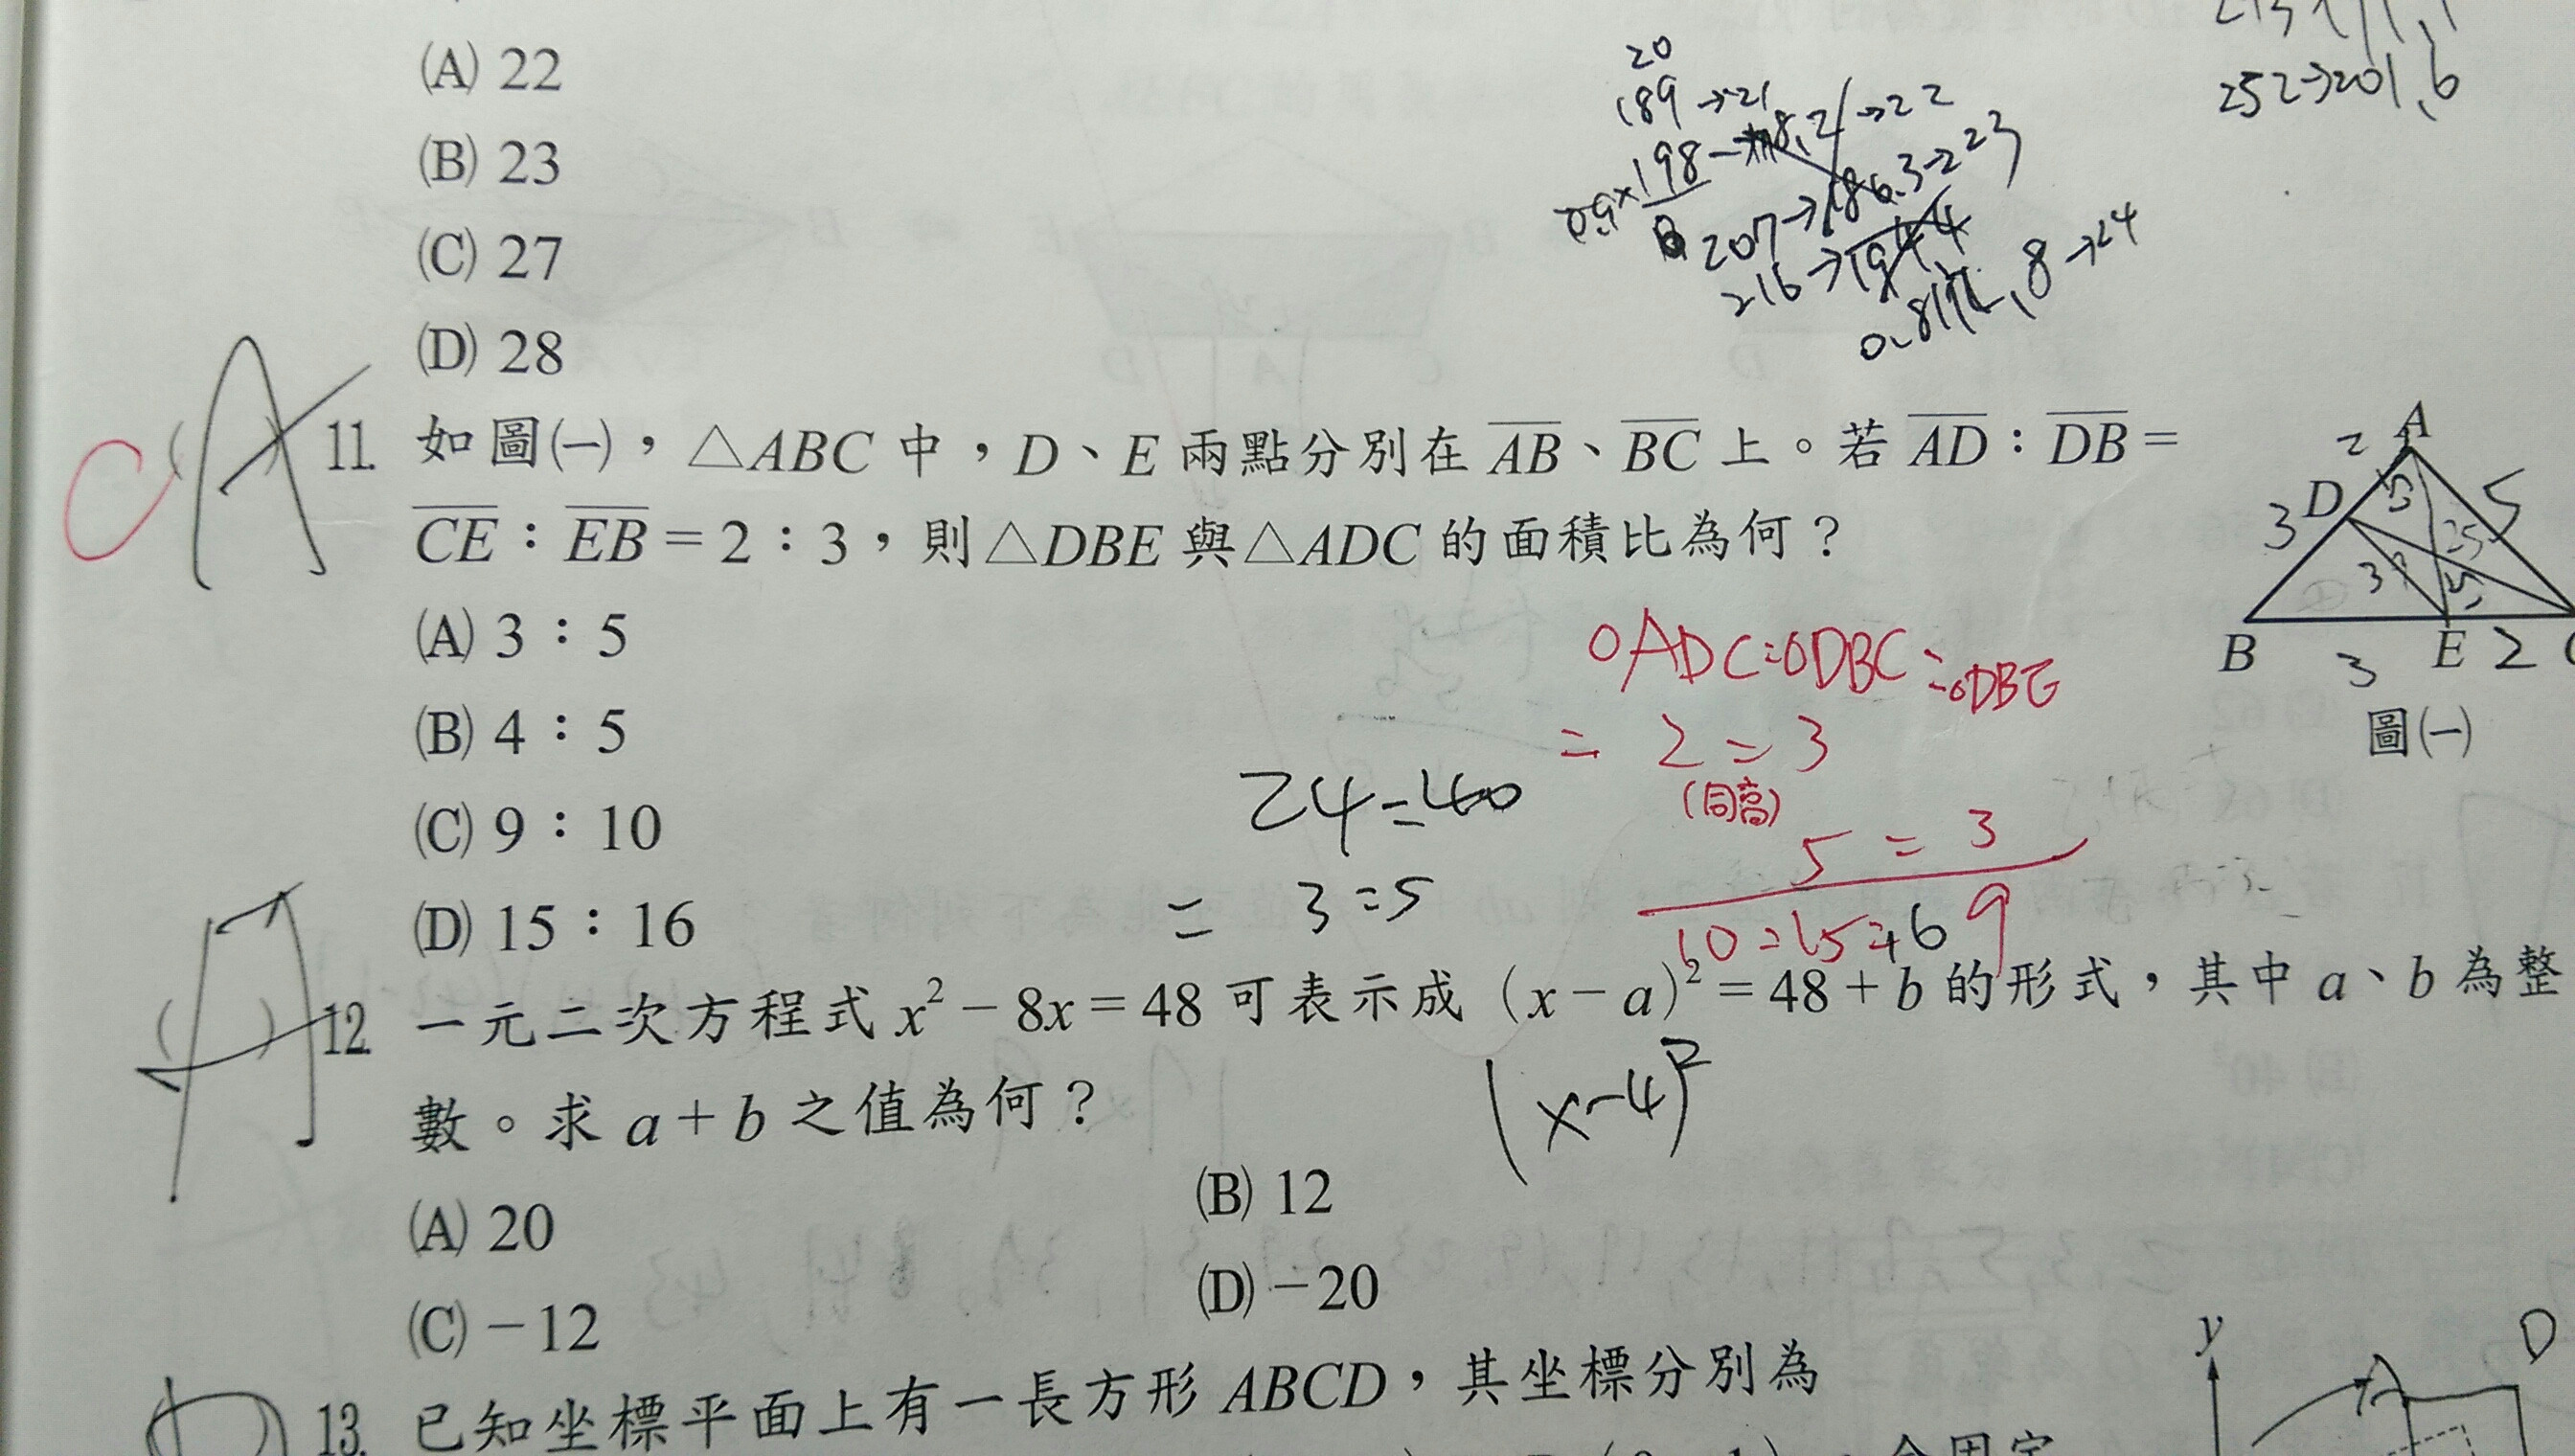 (A) 22
(B) 23
(C) 27
(D) 28
20
189→21
→22
207→186.3→23
216→
.8→24
252→201.6
C
(A) 11. 如圖㈠，△ABC 中，D、E 兩點分別在 AB、BC 上。若 AD：DB＝
CE：EB＝2：3，則△DBE 與△ADC 的面積比為何？
(A) 3：5
(B) 4：5
(C) 9：10
(D) 15：16
A
2
D
3
5
25
B
3
E
2
圖㈠
△ADC:△DBC:△DBE
= 2 : 3
(同高)
5 : 3
10:15: 9
24:40
= 3:5
(A) 12. 一元二次方程式 x² − 8x = 48 可表示成 (x − a)² = 48 + b 的形式，其中 a、b 為整
數。求 a + b 之值為何？
(x-4)²
(A) 20
(B) 12
(C) −12
(D) −20
13. 已知坐標平面上有一長方形 ABCD，其坐標分別為
y
D